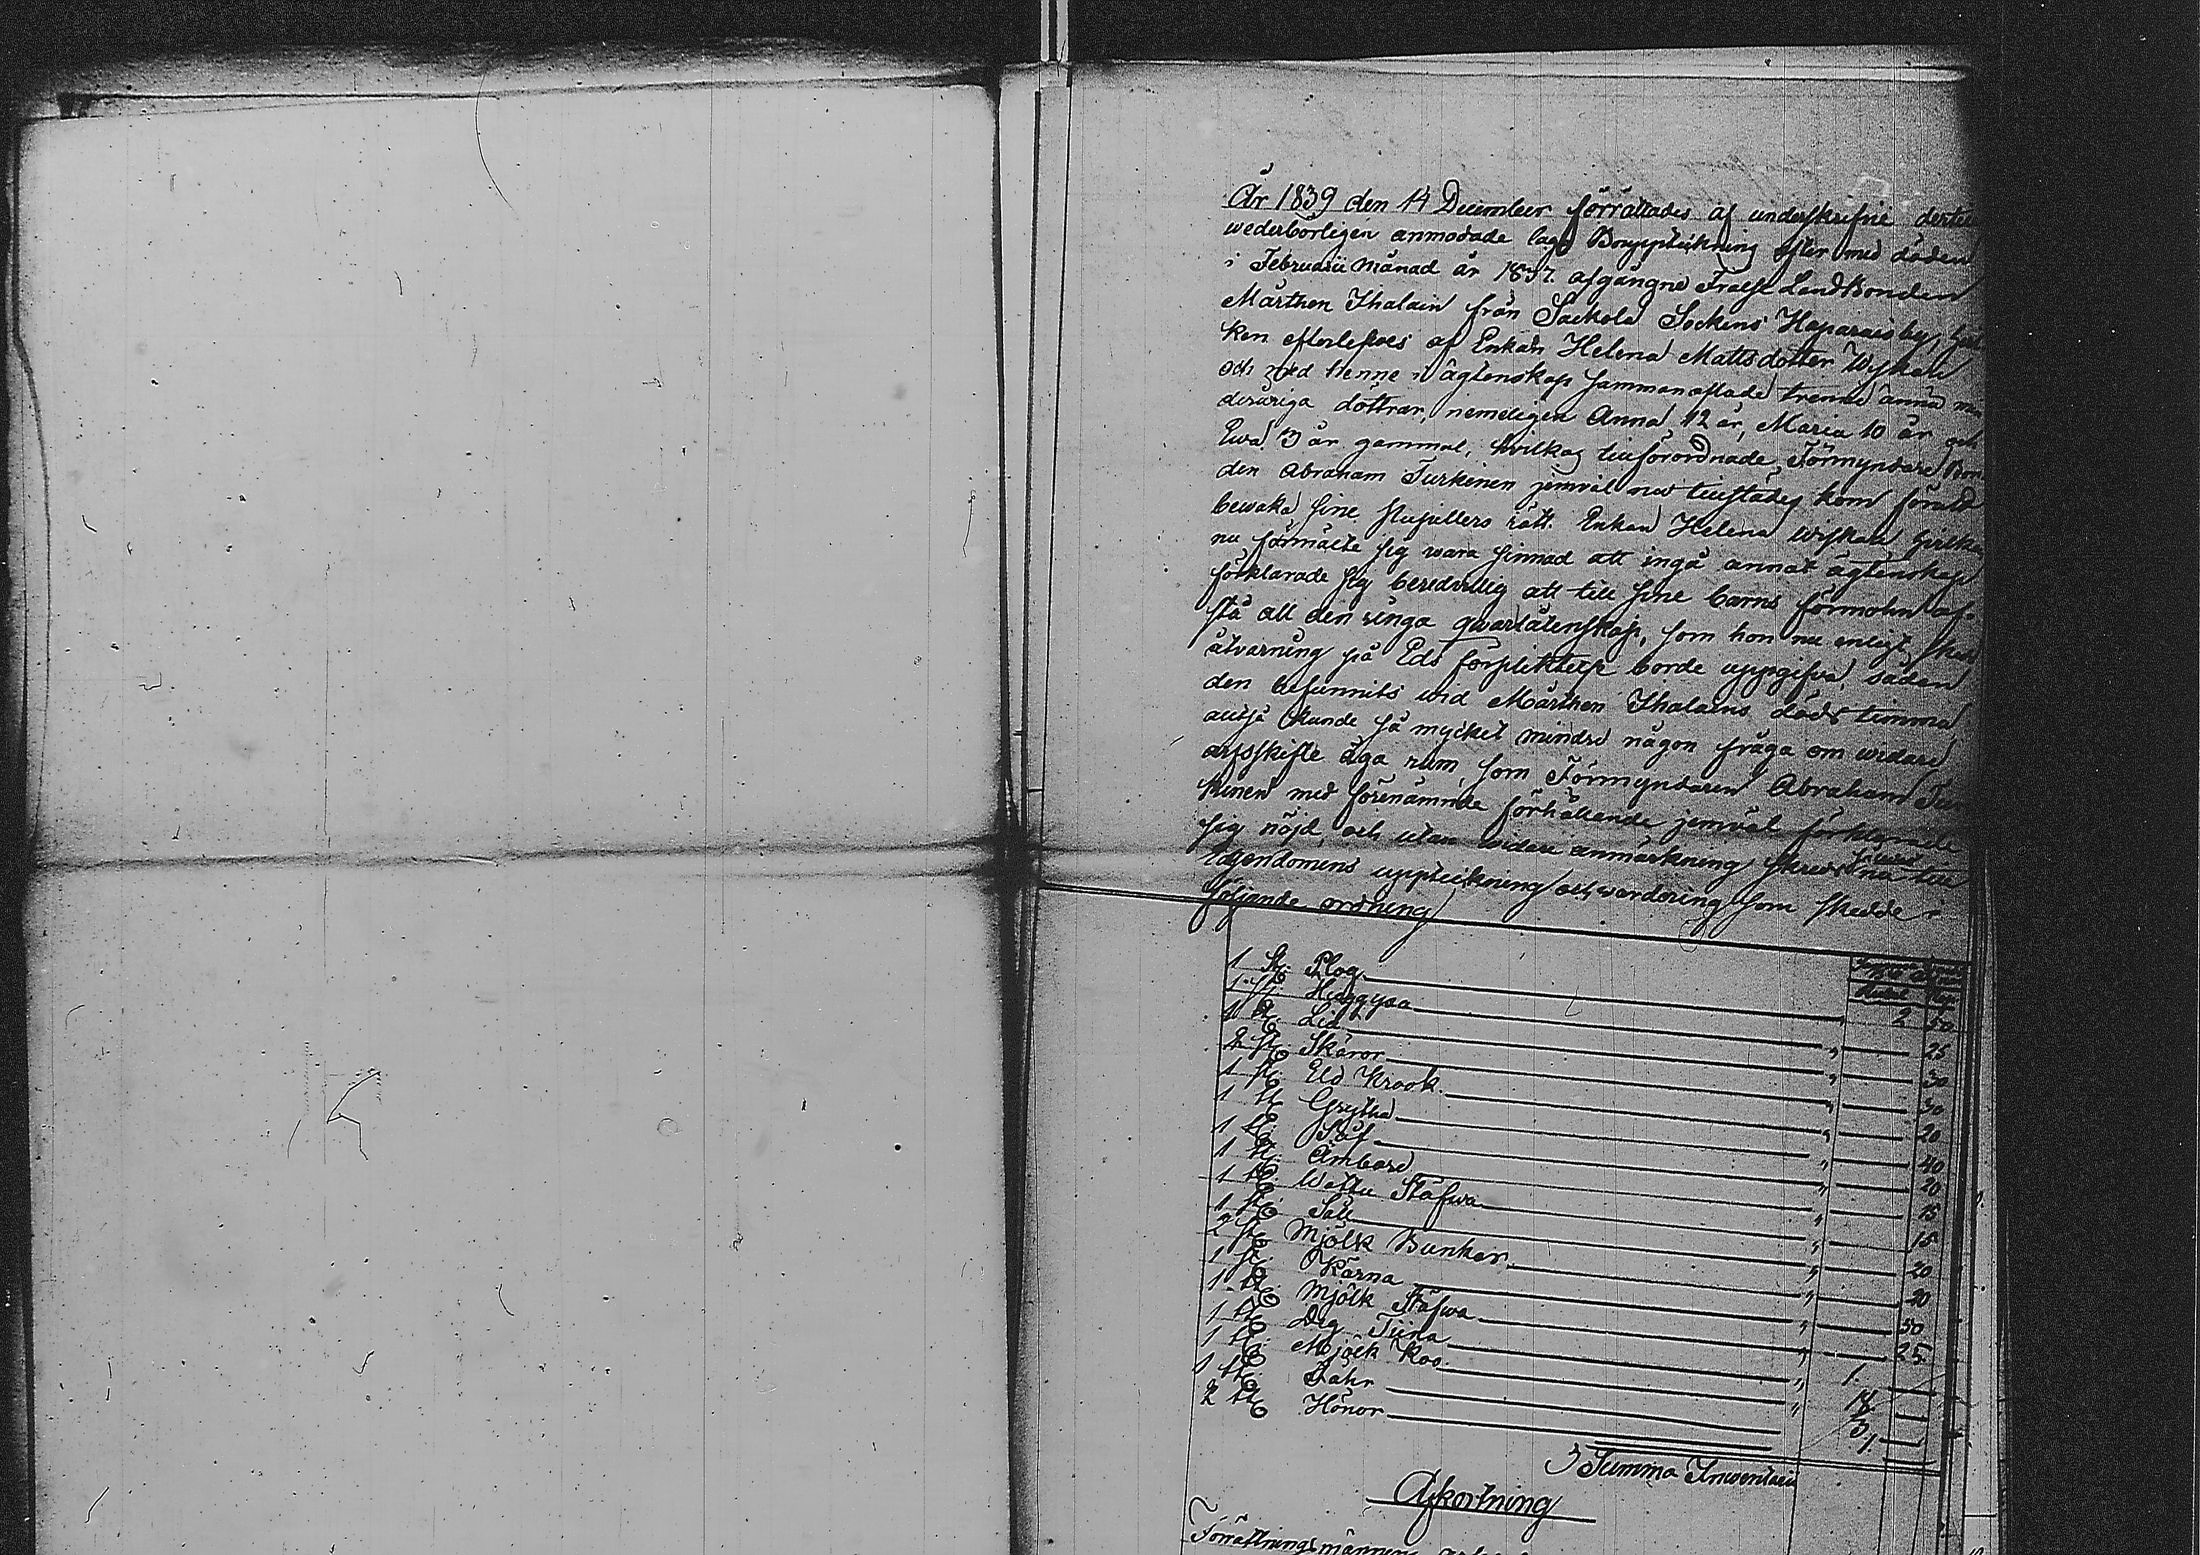 År 1839 den 14 December förrättades af underskrifne dertill
wederbörligen anmodade laga Bouppteckning efter med döden
i Februarii månad år 1837. afgångne Fralse LandBonden
Mårthen Ihalain från Sackola Sockens Haparais by,
ken efterlefves af Enkan Helena Mattsdotter Wiskari
och med Henne i ägtenskap sammanaflade trenne ännu min
deråriga döttrar, nemeligen Anna 12 år, Maria 10 år och
Ewa 3 år gammal, hvilkas tillförordnade Förmyndare Bon
den Abraham Turkinen jemväl nu tillstädes kom för att
bewaka sine Pupillers rätt. Enkan Helena Wiskari hvilken
nu förmälte sig wara sinnad att ingå annat ägtenskap
förklarade sig beredvillig att till sine barns förmohn af-
stå all den ringa qwarlåtenskap, som hon nu enligt skedd
åtvarning på Eds förplicktelse borde uppgifva, sådan
den befunnits vid Mårthen Ihalains döds timma
altså kunde så mycket mindre någon fråga om widare
arfsskifte äga rum, som Förmyndaren Abraham Tur
kinen med förenämnde förhållande jemväl förklarade
sig nöjd, och utan widare anmärkning skreds nu till
Egendomens uppteckning och wardering som skedde i
följande ordning
1 st. Plog 2 50
1 st. Huggyxa " 25
1 st. Lid " 30
2 st. Skäror " 30
1 st. Eld Krook " 20
1 st. Grytha " 40
1 st. Såf " 20
1 st. Ämbare " 15
1 st. Wattu Stäfwa " 15
1 st. Såll " 20
2 st. Mjölk Bunkar " 20
1 st. Kärna " 50
1 st. Mjölk Stäfwa " 25
1 st. Deg Tiina 1
1 st. Mjölk Koo 18
1 st. Fahr 3
2 st. Hönor 1
Summa Inventarii
Afkortning
Förrättningsmännens